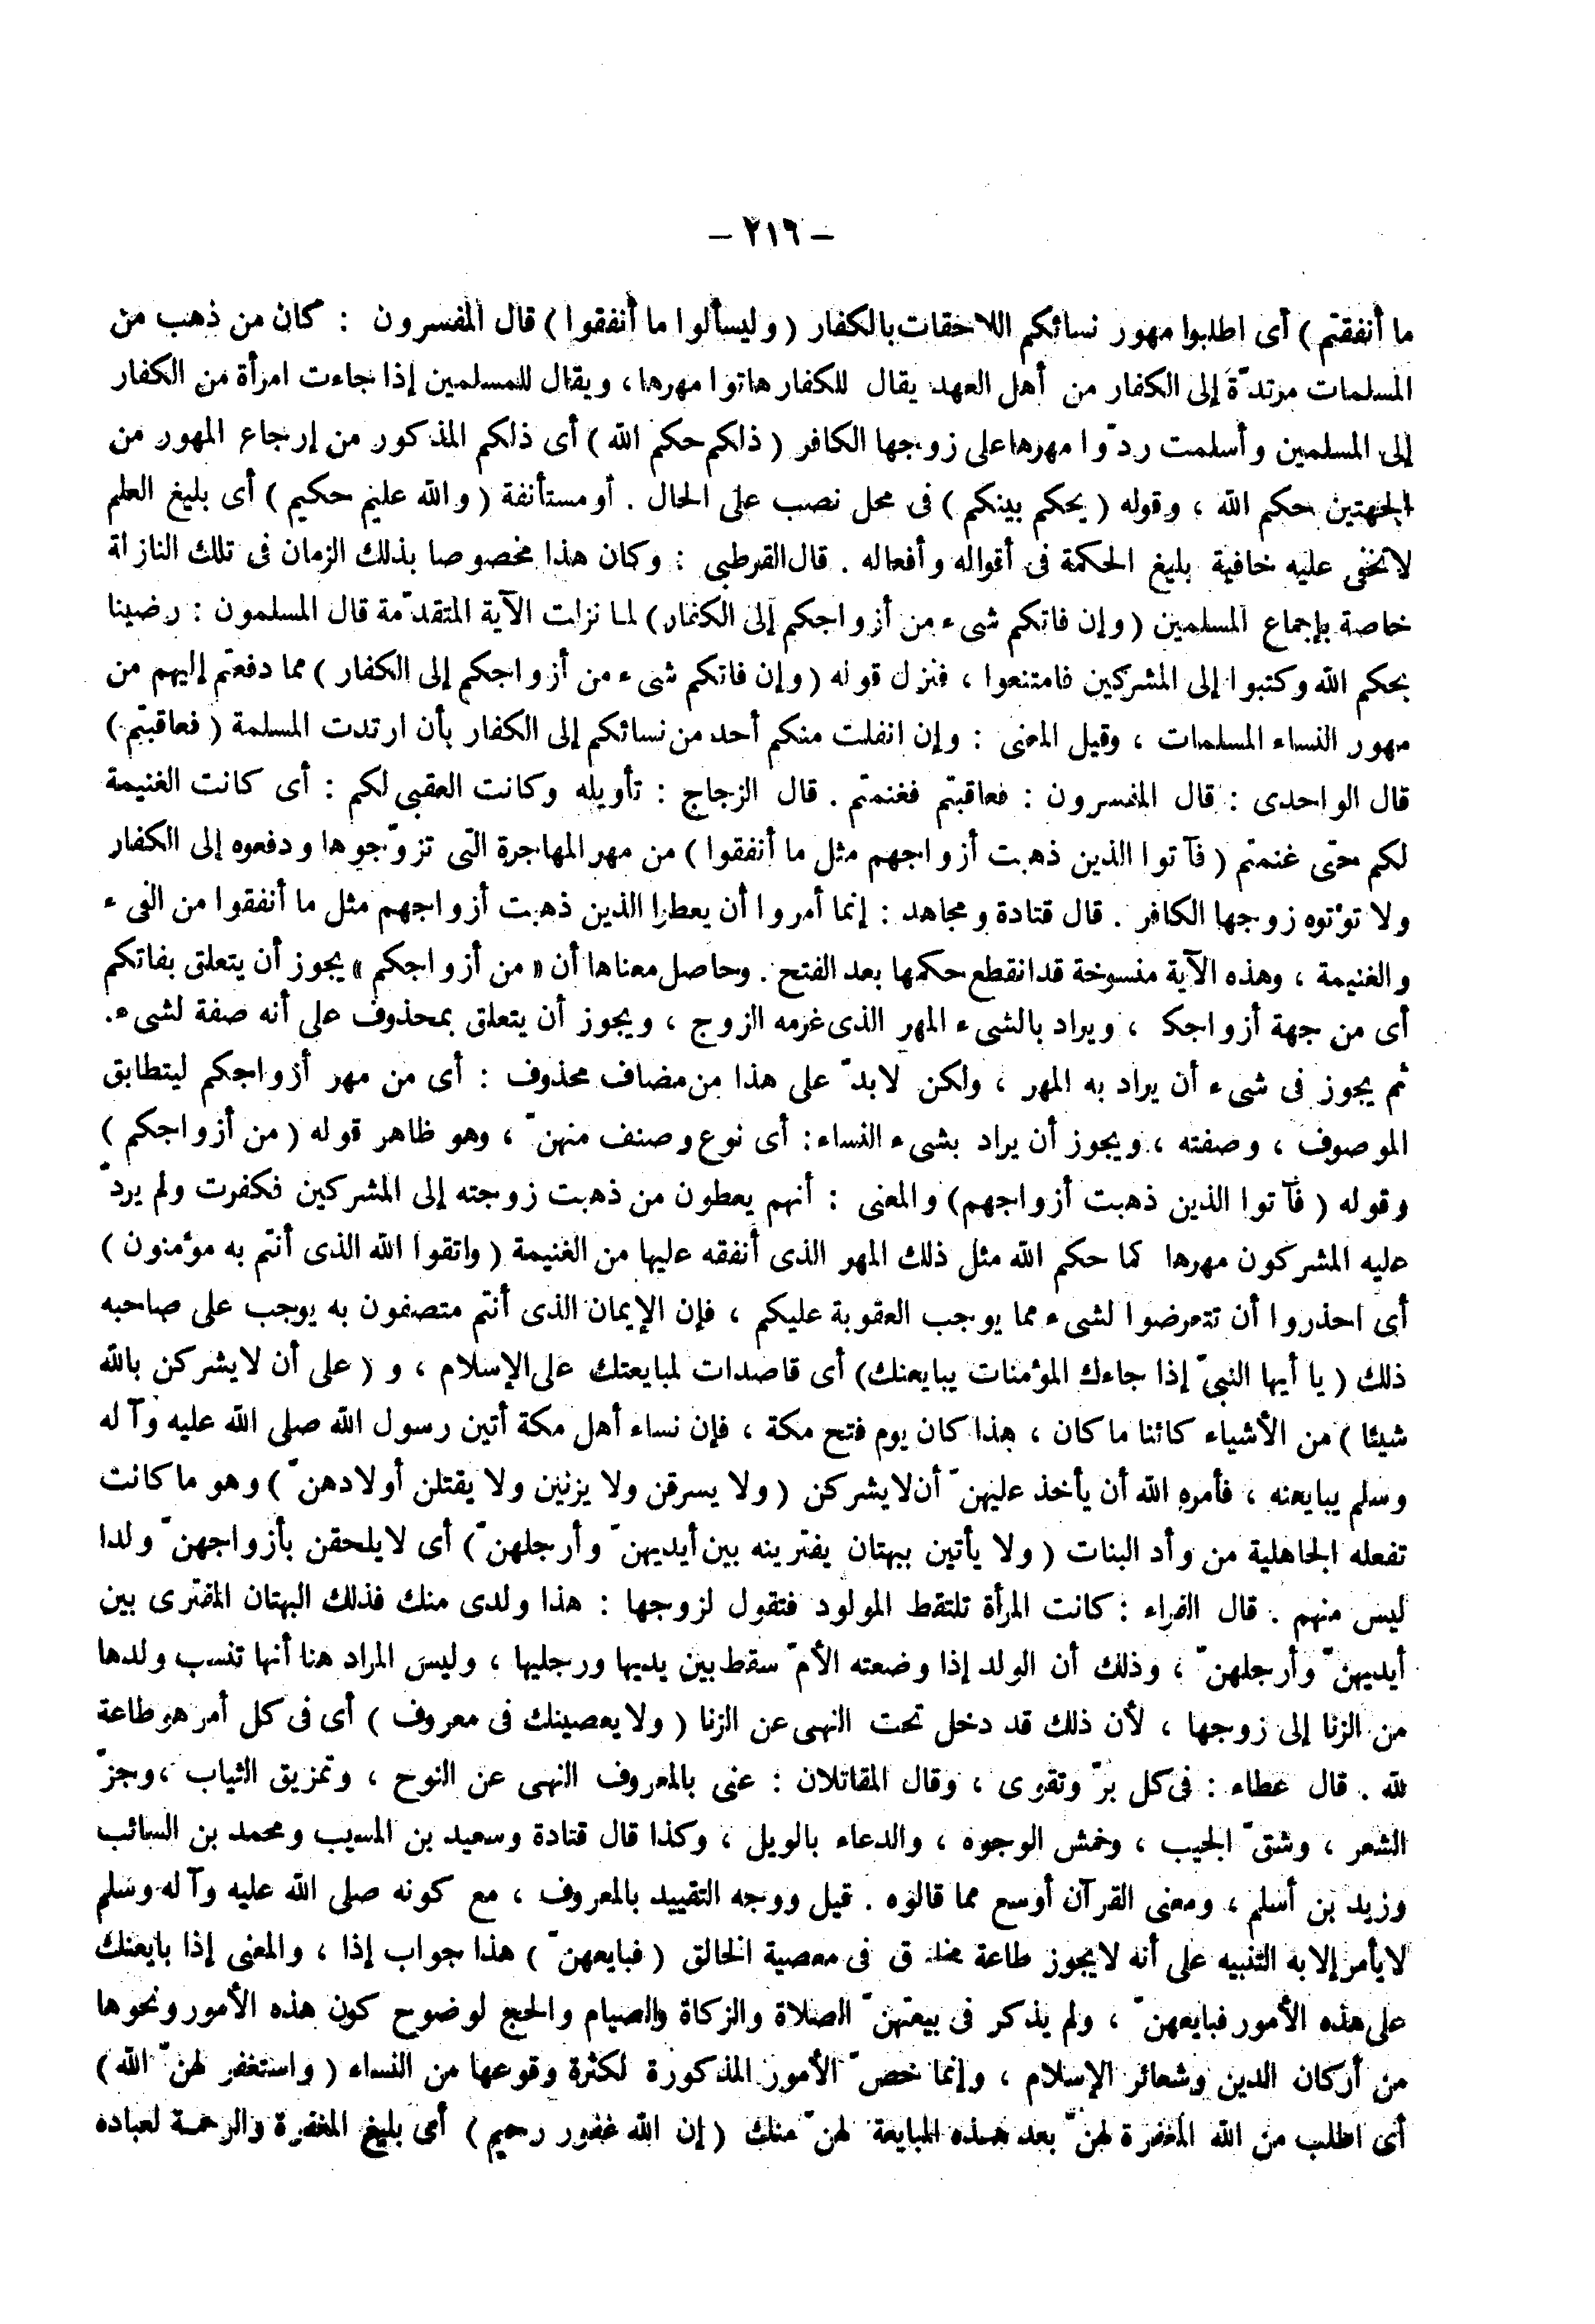 – ٢١٦ –
ما أنفقتم ) أى اطلبوا مهور نسائكم اللاحقات بالكفار ( وليسألوا ما أنفقوا ) قال المفسرون : كان من ذهب من
المسلمات مرتدّة إلى الكفار من أهل العهد يقال للكفار هاتوا مهرها ، ويقال للمسلمين إذا جاءت امرأة من الكفار
إلى المسلمين وأسلمت ردّوا مهرها على زوجها الكافر ( ذلكم حكم الله ) أى ذلكم المذكور من إرجاع المهور من
الجهتين حكم الله ، وقوله ( يحكم بينكم ) فى محل نصب على الحال . أو مستأنفة ( والله عليم حكيم ) أى بليغ العلم
لاتخفى عليه خافية بليغ الحكمة فى أقواله وأفعاله . قال القرطبى : وكان هذا مخصوصا بذلك الزمان فى تلك النازلة
خاصة بإجماع المسلمين ( وإن فاتكم شىء من أزواجكم إلى الكفار ) لما نزلت الآية المتقدّمة قال المسلمون : رضينا
بحكم الله وكتبوا إلى المشركين فامتنعوا ، فنزل قوله ( وإن فاتكم شىء من أزواجكم إلى الكفار ) مما دفعتم إليهم من
مهور النساء المسلمات ، وقيل المعنى : وإن انفلت منكم أحد من نسائكم إلى الكفار بأن ارتدت المسلمة ( فعاقبتم )
قال الواحدى : قال المفسرون : فعاقبتم فغنمتم . قال الزجاج : تأويله وكانت العقبى لكم : أى كانت الغنيمة
لكم حتى غنمتم ( فآتوا الذين ذهبت أزواجهم مثل ما أنفقوا ) من مهر المهاجرة التى تزوّجوها ودفعوه إلى الكفار
ولا تؤتوه زوجها الكافر . قال قتادة ومجاهد : إنما أمروا أن يعطوا الذين ذهبت أزواجهم مثل ما أنفقوا من الفىء
والغنيمة ، وهذه الآية منسوخة قد انقطع حكمها بعد الفتح . وحاصل معناها أن « من أزواجكم » يجوز أن يتعلق بفاتكم
أى من جهة أزواجكـ ، ويراد بالشىء المهر الذى غرمه الزوج ، ويجوز أن يتعلق بمحذوف على أنه صفة لشىء .
ثم يجوز فى شىء أن يراد به المهر ، ولكن لابدّ على هذا من مضاف محذوف : أى من مهر أزواجكم ليتطابق
الموصوف ، وصفته ، ويجوز أن يراد بشىء النساء : أى نوع وصنف منهنّ ، وهو ظاهر قوله ( من أزواجكم )
وقوله ( فآتوا الذين ذهبت أزواجهم ) والمعنى : أنهم يعطون من ذهبت زوجته إلى المشركين فكفرت ولم يردّ
عليه المشركون مهرها كما حكم الله مثل ذلك المهر الذى أنفقه عليها من الغنيمة ( واتقوا الله الذى أنتم به مؤمنون )
أى احذروا أن تتعرضوا لشىء مما يوجب العقوبة عليكم ، فإن الإيمان الذى أنتم متصفون به يوجب على صاحبه
ذلك ( يا أيها النبىّ إذا جاءك المؤمنات يبايعنك ) أى قاصدات لمبايعتك على الإسلام ، و ( على أن لايشركن بالله
شيئا ) من الأشياء كائنا ما كان ، هذا كان يوم فتح مكة ، فإن نساء أهل مكة أتين رسول الله صلى الله عليه وآله
وسلم يبايعنه ، فأمره الله أن يأخذ عليهنّ أن لايشركن ( ولا يسرقن ولا يزنين ولا يقتلن أولادهنّ ) وهو ما كانت
تفعله الجاهلية من وأد البنات ( ولا يأتين ببهتان يفترينه بين أيديهنّ وأرجلهنّ ) أى لايلحقن بأزواجهنّ ولدا
ليس منهم . قال الفراء : كانت المرأة تلتقط المولود فتقول لزوجها : هذا ولدى منك فذلك البهتان المفترى بين
أيديهنّ وأرجلهنّ ، وذلك أن الولد إذا وضعته الأمّ سقط بين يديها ورجليها ، وليس المراد هنا أنها تنسب ولدها
من الزنا إلى زوجها ، لأن ذلك قد دخل تحت النهى عن الزنا ( ولا يعصينك فى معروف ) أى فى كل أمر هو طاعة
لله . قال عطاء : فى كل برّ وتقوى ، وقال المقاتلان : عنى بالمعروف النهى عن النوح ، وتمزيق الثياب ، وجزّ
الشعر ، وشقّ الجيب ، وخمش الوجوه ، والدعاء بالويل ، وكذا قال قتادة وسعيد بن المسيب ومحمد بن السائب
وزيد بن أسلم ، ومعنى القرآن أوسع مما قالوه . قيل ووجه التقييد بالمعروف ، مع كونه صلى الله عليه وآله وسلم
لا يأمر إلا به التنبيه على أنه لايجوز طاعة مخلـ ق فى معصية الخالق ( فبايعهنّ ) هذا جواب إذا ، والمعنى إذا بايعنك
على هذه الأمور فبايعهنّ ، ولم يذكر فى بيعتهنّ الصلاة والزكاة والصيام والحج لوضوح كون هذه الأمور ونحوها
من أركان الدين وشعائر الإسلام ، وإنما خصّ الأمور المذكورة لكثرة وقوعها من النساء ( واستغفر لهنّ الله )
أى اطلب من الله المغفرة لهنّ بعد هذه المبايعة لهنّ منك ( إن الله غفور رحيم ) أى بليغ المغفرة والرحمة لعباده